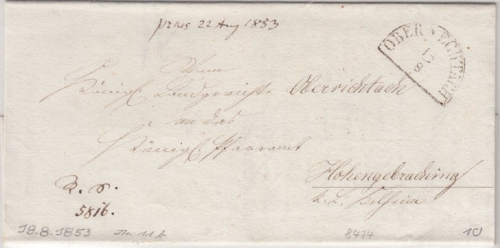 praes 22 Aug 1853
OBERVIECHTACH
18
8
Vom
Königl. Landgerichte Oberviechtach
an das
Königl. Pfarramt
Hohengebraching
R. S.
5816.
18.8.1853
8424
10